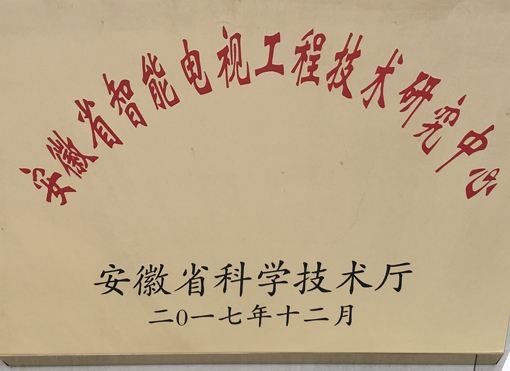 安徽省智能电视工程技术研究中心
安徽省科学技术厅
二0一七年十二月